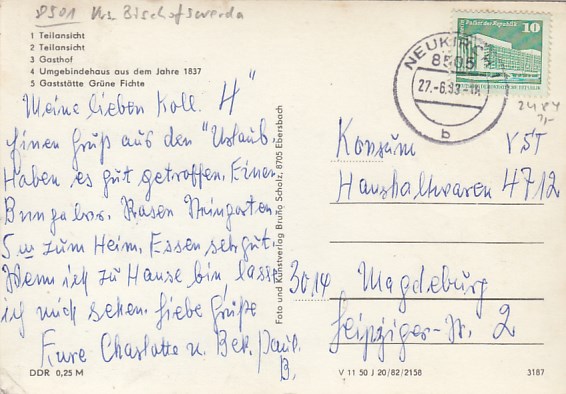 8501 Krs Bischofswerda
1 Teilansicht
2 Teilansicht
3 Gasthof
4 Umgebindehaus aus dem Jahre 1837
5 Gaststätte Grüne Fichte
Meine lieben Koll. 4"
Einen Gruß aus den "Urlaub
Haben es gut getroffen. Einen
Bungalow. Rasen Steingarten
5 m zum Heim. Essen sehr gut.
Wenn ich zu Hause bin lasst
ich mich sehen. Liebe Grüße
Eure Charlotte u. Bek. Paul.
B.
DDR 0,25 M
Foto und Kunstverlag Bruno Scholz, 8705 Ebersbach
NEUKIRCH
8505
27.-6.83
b
10
Palast der Republik
Konsum VST
Haushaltwaren 4712
3014 Magdeburg
Leipziger-Str. 2
V 11 50 J 20/82/2158
3187